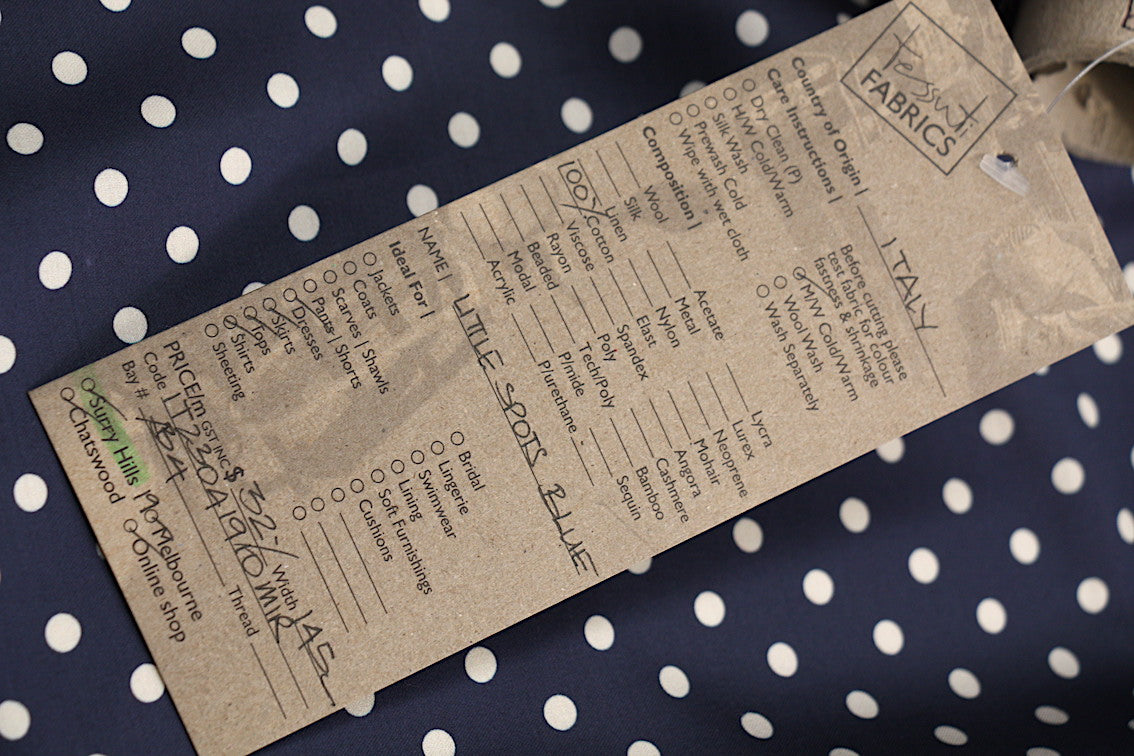 tessuti
FABRICS
Country of Origin | ITALY
Care Instructions |
Dry Clean (P)
H/W Cold/Warm
Silk Wash
Prewash Cold
Wipe with wet cloth
Before cutting please
test fabric for colour
fastness & shrinkage
M/W Cold/Warm
Wool Wash
Wash Separately
Composition |
Wool
Silk
Linen
100% Cotton
Viscose
Rayon
Beaded
Modal
Acrylic
Acetate
Metal
Nylon
Elast
Spandex
Poly
Tech/Poly
P/mide
P/urethane
Lycra
Lurex
Neoprene
Mohair
Angora
Cashmere
Bamboo
Sequin
NAME | LITTLE SPOTS BLUE
Ideal For |
Jackets
Coats
Scarves | Shawls
Pants | Shorts
Dresses
Skirts
Tops
Shirts
Sheeting
Bridal
Lingerie
Swimwear
Lining
Soft Furnishings
Cushions
PRICE/m GST INC $ 32-/ Width 145
Code
Bay # Thread
Surry Hills Melbourne
Chatswood Online shop